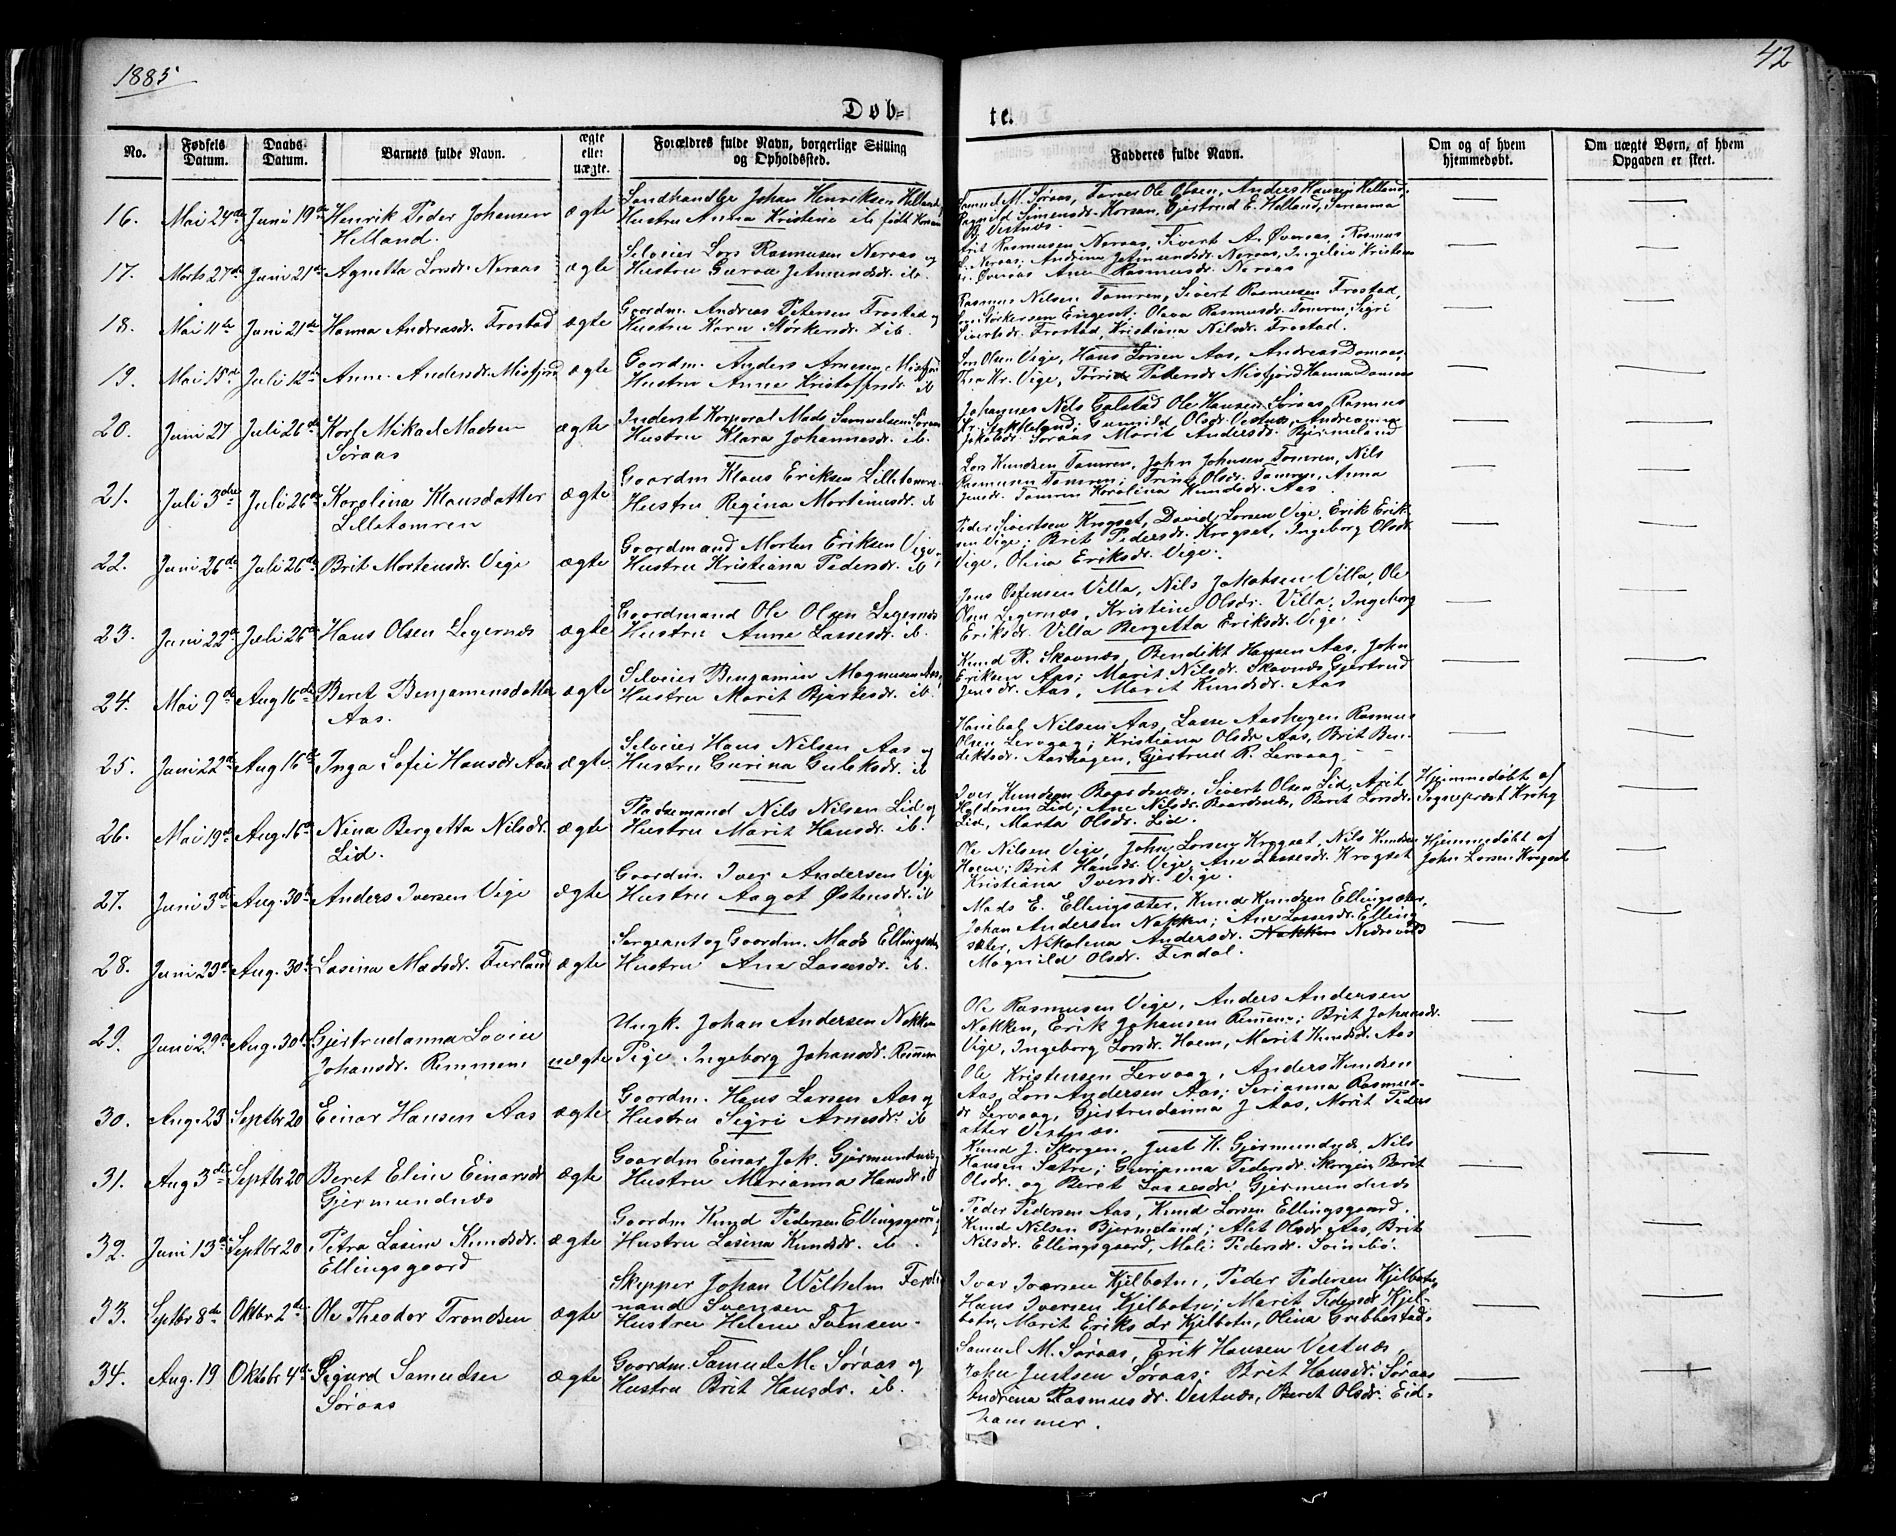 1885
42
Døb-
te.
No.
Fødsels Datum.
Daabs Datum.
Barnets fulde Navn.
ægte eller uægte.
Forældres fulde Navn, borgerlige Stilling og Opholdssted.
Fadderes fulde Navn.
Om og af hvem hjemmedøbt.
Om uægte Børn, af hvem Opgaven er skeet.
16. Mai 24de Juni 19de Henrik Peder Johansen ægte Landhandler Johan Henriksen Helland,
Helland. Hustru Anna Kristine ib. født Korsan
Samuel M. Søraas, Farver Ole Olsen, Anders Hansen Helland,
Ragnild Simensdr. Korsan, Gjertrud E. Helland, Serianna
B. Vestnæs.
17. Marts 27de Juni 21de Agnetta Larsdr. Neraas ægte Selveier Lars Rasmusen Neraas og
Hustru Guroe J. Amundsdr. ib.
Brit Rasmusen Neraas, Sivert A. Øveraas, Rasmus
L. Neraas, Andrina J. Amundsdr. Neraas, Ingeleiv Kristens
dr. Øveraas Ane Rasmusdr. Neraas
18. Mai 11te Juni 21de Hanna Andreasdr. Frostad ægte Gaardm. Andreas Petersen Frostad og
Hustru Karen Størkersdr. ib.
Rasmus Nilsen Tomren, Sivert Rasmusen Frostad,
Lars Størkersen Engeset; Olava Rasmusdr. Tomren, Sigri
Sivertsdr. Frostad, Kristiana Nilsdr. Frostad.
19. Mai 15de Juli 12te Anne Andersdr. Misfjord ægte Gaardm. Anders Arnesen Misfjord
Hustru Anne Kristoffersdr. ib
Lars Olsen Vige, Hans Larsen Aas, Andreas Domaas,
Thea Kr. Vige, Tørris Pedersdr. Misfjord Hanna Domaas
20. Juni 27 Juli 26de Karl Mikal Madsen ægte Inderst Korporal Mads Samuelsen Søraas
Søraas Hustru Klara Johannesdr. ib.
Johannes Nils Galstad Ole Hansen Søraas, Rasmus
Kr. Sykkelund; Gunnild Olsdr. Vestnæs, Andreanna
Jakobsdr. Søraas Marit Andersdr. Bjermeland
21. Juli 3die Juli 26de Karolina Klausdatter ægte Gaardm Klaus Eriksen Lilletomren
Lilletomren Hustru Regina Mortinusdr. ib
Lars Knudsen Tomren, John Johnsen Tomren, Nils
Rasmusen Tomren; Trine Olsdr. Tomren, Anna
Jensdr. Tomren Karolina Knudsdr. Aas.
22. Juni 26de Juli 26de Brit Mortensdr. Vige ægte Gaardmand Morten Eriksen Vige,
Hustru Kristiana Pedersdr. ib
Peder Sivertsen Krogset, David Larsen Vige, Erik Erik-
sen Vige; Brit Pedersdr. Krogset, Ingeborg Olsdr.
Vige, Olina Eriksdr. Vige.
23. Juni 22de Juli 26de Hans Olsen Legernæs ægte Gaardmand Ole Olsen Legernæs
Hustru Anne Lassesdr. ib.
Jens Østensen Villa, Nils Jakobsen Villa, Ole
Olsen Legernæs, Kristine Olsdr. Villa, Ingeborg
Eriksdr. Villa Bergetta Eriksdr. Vige.
24. Mai 9de Aug 16de Beret Benjaminsdatter ægte Selveier Benjamin Magnusen Aas,
Aas. Hustru Marit Bjerkesdr. ib.
Knud R. Skavnæs, Bendikt Hansen Aas, John
Eriksen Aas; Marit Nilsdr. Skavnæs, Gjertrud
Jensdr. Aas, Maret Knudsdr. Aas
25. Juni 22de Aug 16de Inga Sofie Hansdr Aas ægte. Selveier Hans Nilsen Aas og
Hustru Gurina Guleksdr. ib
Hanibal Nilsen Aas, Lasse Aashagen Rasmus
Olsen Lervaag; Kristiana Olsdr Aas, Brit Ben-
diktsdr. Aashagen, Gjertrud R. Lervaag
26. Mai 19de Aug. 16de Nina Bergetta Nilsdr. ægte Pladsemand Nils Nilsen Lid og
Lid. Hustru Marit Hansdr. ib.
Iver Knudsen Baardsnæs, Sivert Olsen Lid, Arit
Haldorsen Lid; Ane Nilsdr. Baardsnæs, Beret Larsdr.
Lid, Marta Olsdr. Lid.
Hjemmedøbt af
Sogneprest Krohg
27. Juni 3die Aug. 30te Anders Iversen Vige ægte Gaardm. Iver Andersen Vige
Hustru Aagot Østensdr. ib
Ole Nilsen Vige, John Larsen Krogset, Nils Knudsen
Hoem; Brit Hansdr. Vige, Ane Lassesdr. Krogset
Kristiana Iversdr. Vige.
Hjemmedøbt af
John Larsen Krogset
28. Juni 23de Aug. 30te Lasina Madsdr. Furland ægte Sergeant og Gaardm. Mads Ellingsæter
Hustru Ane Lassesdr. ib.
Mads E. Ellingsæter, Knud Knudsen Ellingsæter,
Johan Andersen Nakken; Ane Lassesdr. Elling
sæter, Nikolena Andersdr. Nakken
Magnild Olsdr. Findal.
29. Juni 29de Aug. 30te Gjertrudanna Lovise Ungk. Johan Andersen Nakken
Johansdr. Remmem uægte Pige Ingeborg Johansdr. Remmem
Ole Rasmusen Vige, Anders Andersen
Nakken, Erik Johansen Remmem; Brit Johansdr.
Vige, Ingeborg Larsdr. Hoem, Marit Knudsdr. Aas
30. Aug. 23 Septbr 20 Einar Hansen Aas ægte Gaardm. Hans Larsen Aas og
Hustru Sigri Arnesdr. ib
Ole Kristensen Lervaag, Anders Knudsen
Aas, Lars Andersen Aas; Serianna Rasmus-
dr Lervaag, Gjertrudanna J Aas, Marit Peders
datter Vestnæs.
31. Aug 3die Septbr 20 Beret Eline Einarsdr ægte Gaardm Einar Jak. Gjermundnæs,
Gjermundnæs Hustru Marianna Hansdr. ib
Knud J. Skorgen, Just K. Gjermundnæs, Nils
Hansen Sætre; Gurianna Pedersdr. Skorgen Berit
Olsdr. og Beret Lassesdr. Gjermundnæs
32. Juni 13de Septbr 20 Petra Lasine Knudsdr. ægte Gaardm Knud Pedersen Ellingsgaard,
Ellingsgaard Hustru Lasina Knudsdr. ib.
Peder Pedersen Aas, Knud Larsen Ellingsgaard.
Knud Nilsen Bjermeland; Alet Olsdr Aas, Brit
Nilsdr. Ellingsgaard, Mali Pedersdr. Svinebø.
33. Septbr 8de Oktbr 2de Ole Theodor Trondsen ægte Skipper Johan Wilhelm Ferdi
nand Svensen og
Hustru Helene Svensen.
Ivar Iversen Kjelbotn, Peder Pedersen Kjelbotn,
Hans Iversen Kjelbotn; Marit Pedersdr Kjel-
botn, Marit Eriksdr Kjelbotn, Olina Grebbestad.
34. Aug. 19 Oktbr 4de Sigurd Samuelsen ægte Gaardm. Samuel M. Søraas og
Søraas Hustru Brit Hansdr. ib.
Samuel M. Søraas, Erik Hansen Vestnæs,
John Justsen Søraas; Brit Hansdr. Søraas
Andrina Rasmusdr. Vestnæs, Beret Olsdr. Eid-
hammer.